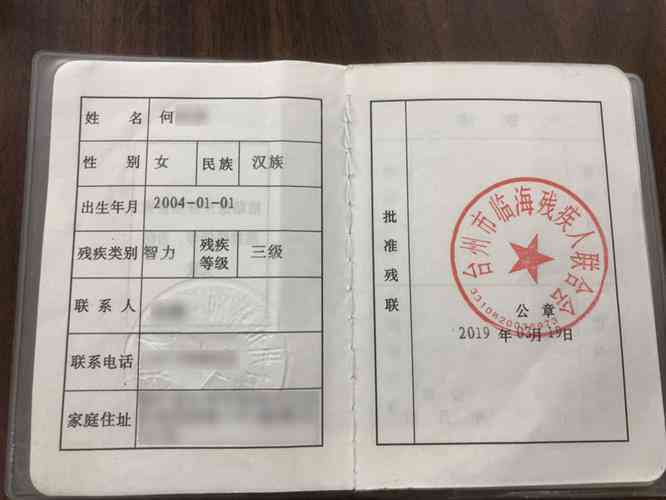 姓 名 何
性 别 女 民族 汉族
出生年月 2004-01-01
残疾类别 智力 残疾等级 三级
联系人
联系电话
家庭住址
批准残联
台州市临海残疾人联合会
公 章
2019 年 03月 19日